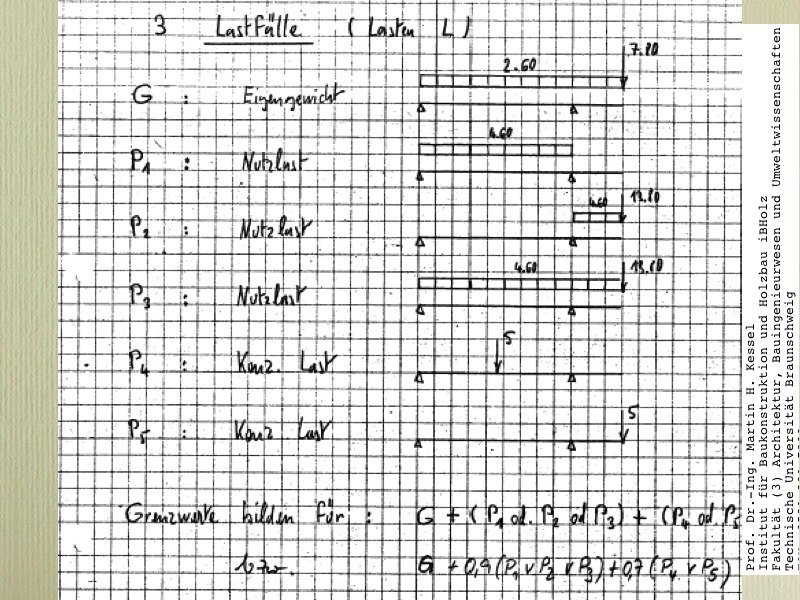 3 Lastfälle ( Lasten L )
7.80
2.60
G : Eigengewicht
4.60
P1 : Nutzlast
4.60 13.80
P2 : Nutzlast
4.60 13.80
P3 : Nutzlast
5
P4 : Konz. Last
5
P5 : Konz Last
Grenzwerte bilden für : G + (P1 od. P2 od P3) + (P4 od. P5
bzw. G + 0,9 (P1 v P2 v P3) + 0,7 (P4 v P5)
Prof. Dr.-Ing. Martin H. Kessel
Institut für Baukonstruktion und Holzbau iBHolz
Fakultät (3) Architektur, Bauingenieurwesen und Umweltwissenschaften
Technische Universität Braunschweig